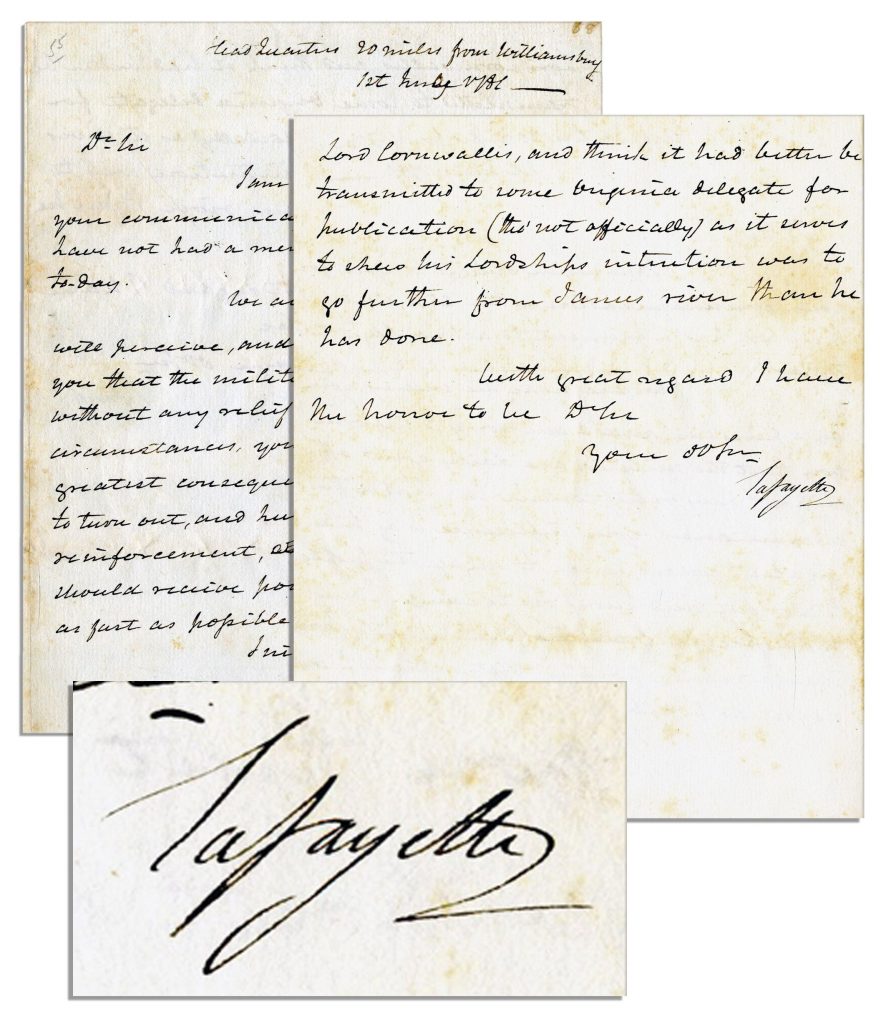 68
55
Head Quarters 20 miles from Williamsburg
1st July 1781
Dr Sir
I am
your communica
have not had a
to-day.
We a
will perceive, and
you that the milit
without any relief
circumstances, you
greatest conseque
to turn out, and
reinforcement,
should receive
as fast as possible
Lord Cornwallis, and think it had better be
transmitted to some Virginia delegate for
publication (tho' not officially) as it serves
to shew his Lordships intention was to
go further from James river than he
has done.
With great regard I have
the honor to be Dr Sir
Your ob Sr
Lafayette
Lafayette